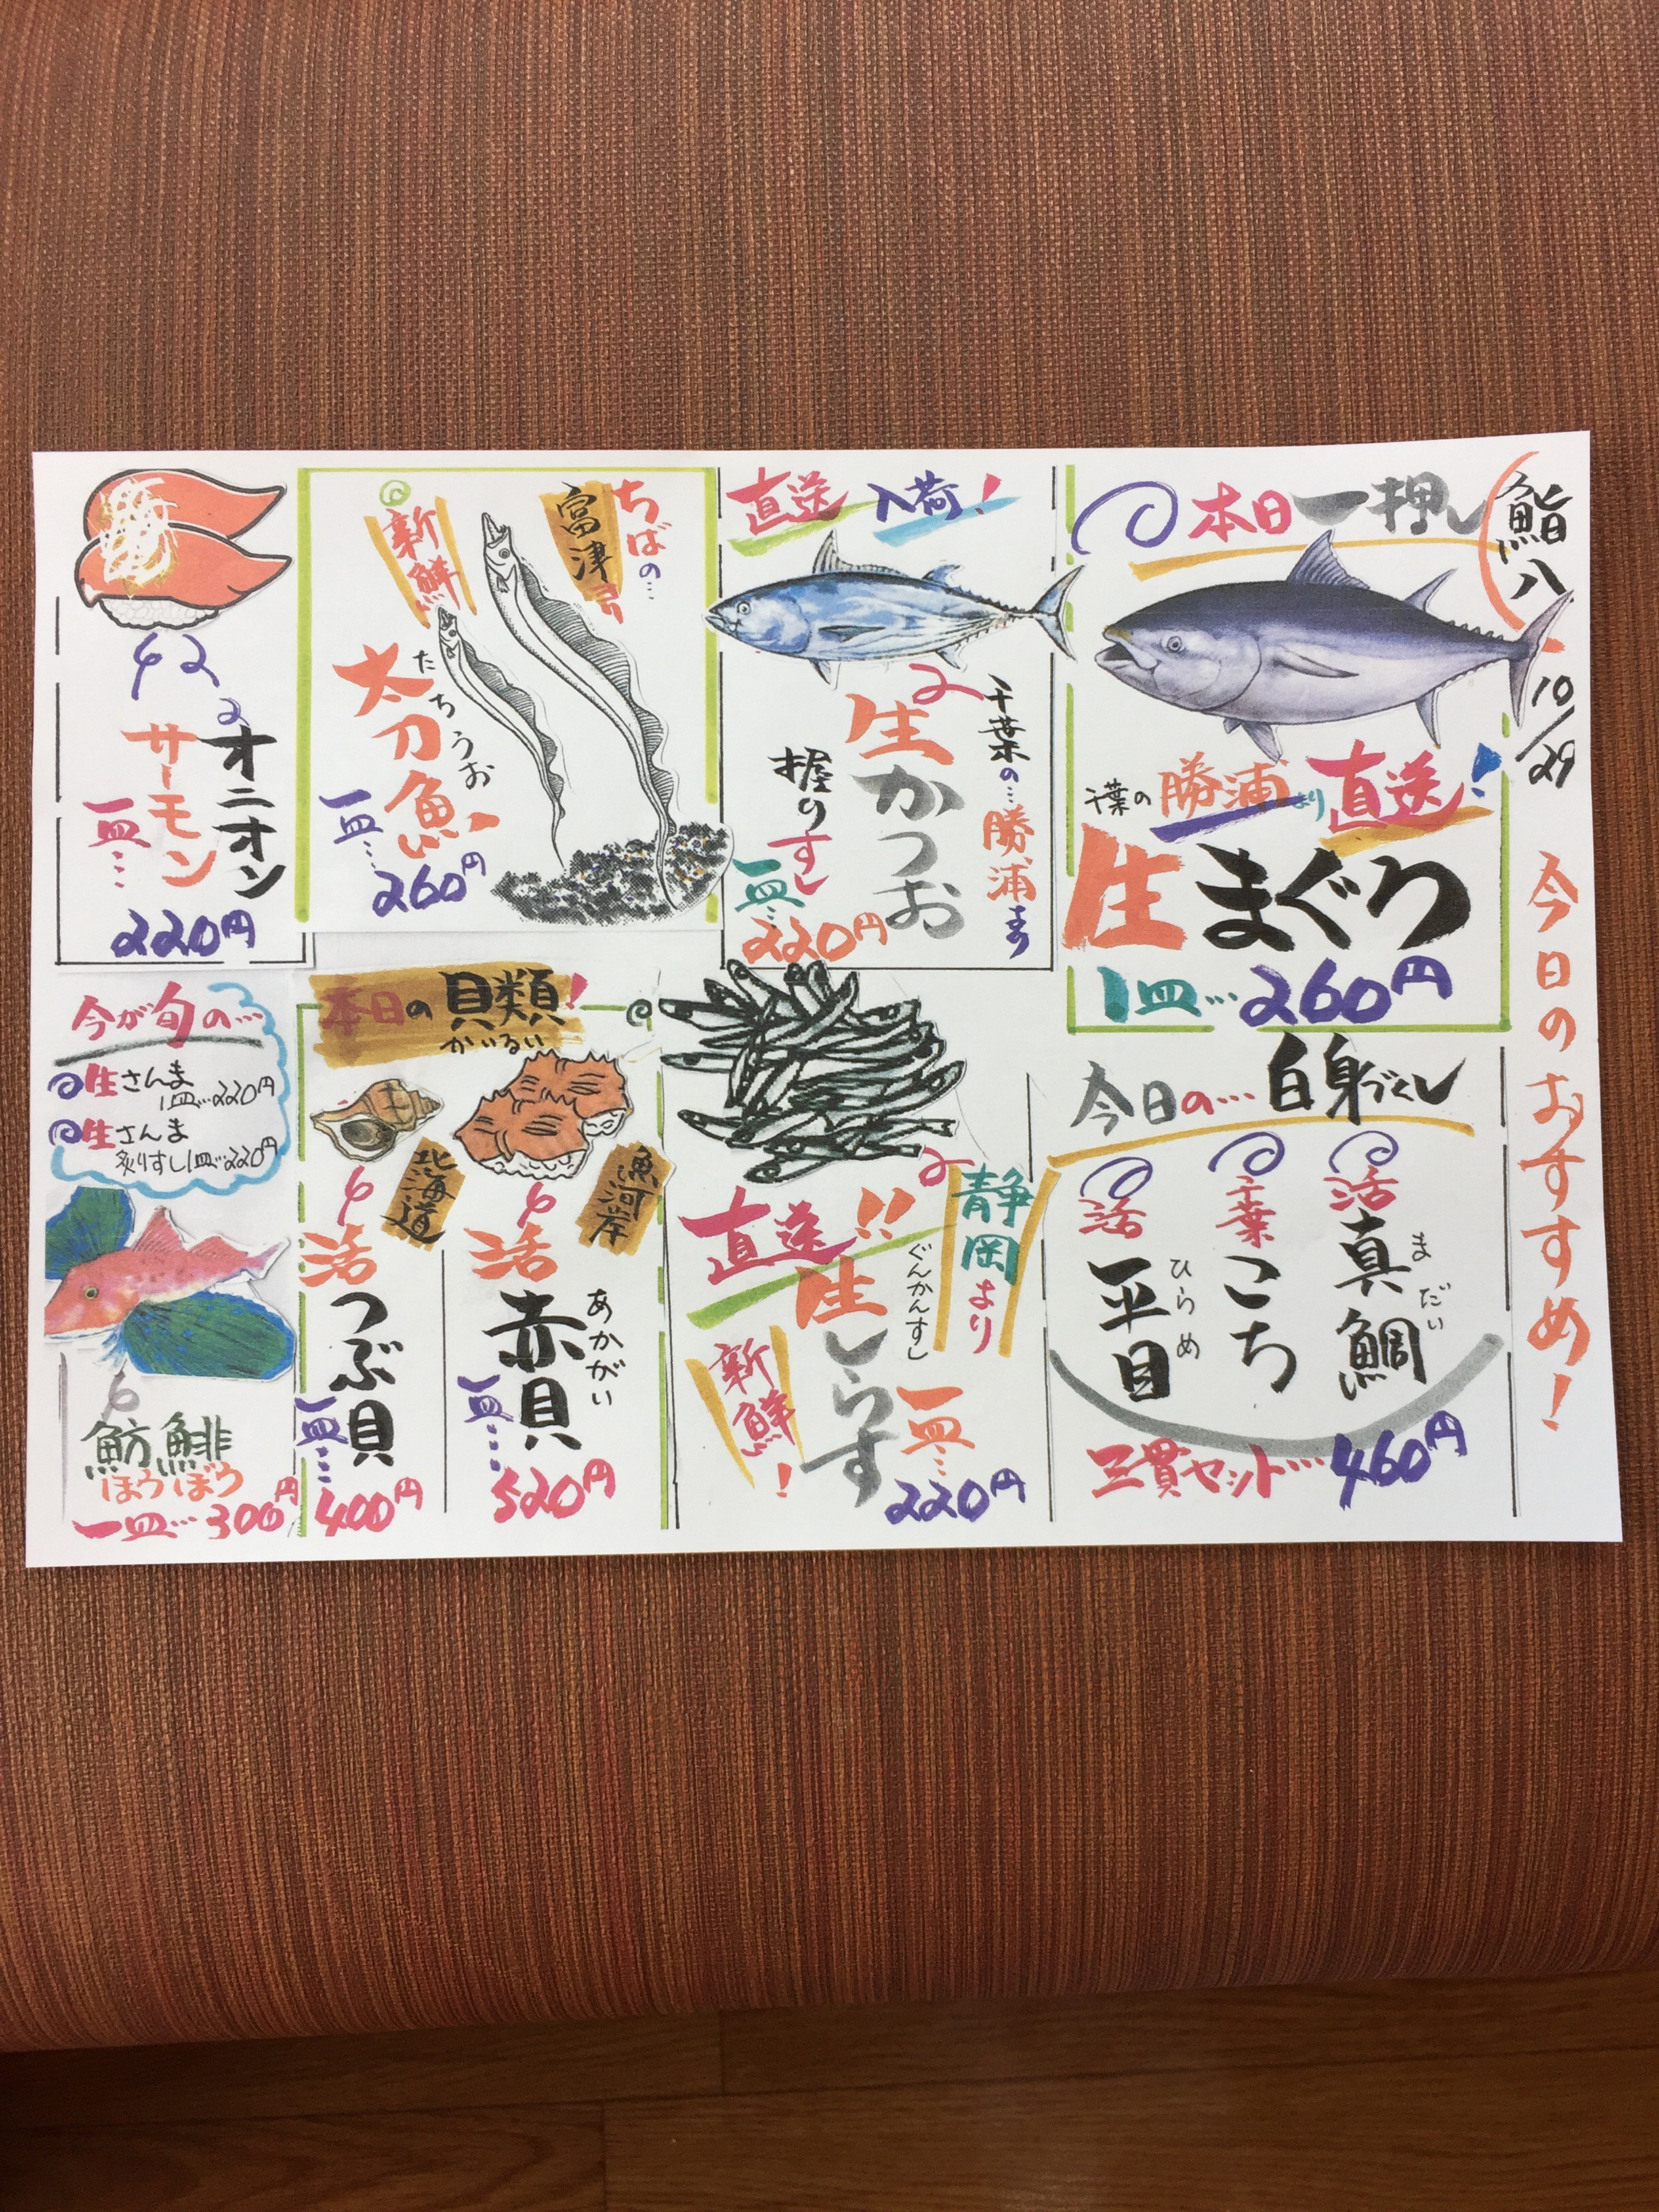 鮨八
10/29
今日のおすすめ!
本日一押し
千葉の勝浦より直送!
生まぐろ
1皿…260円
直送入荷!
千葉の…勝浦より
生かつお
握りすし
一皿…
220円
ちばの…
富津
新鮮
太刀魚
たちうお
一皿…
260円
オニオン
サーモン
一皿…
220円
今日の…白身づくし
活真鯛
まだい
千葉こち
活平目
ひらめ
三貫セット…460円
静岡より
直送!!
生しらす
ぐんかんすし
新鮮!
一皿…
220円
本日の貝類!
かいるい
魚河岸
活赤貝
あかがい
一皿…
520円
北海道
活つぶ貝
一皿…
400円
今が旬の…
生さんま
1皿…220円
生さんま
炙りすし1皿…220円
魴鯡
ほうぼう
一皿…300円